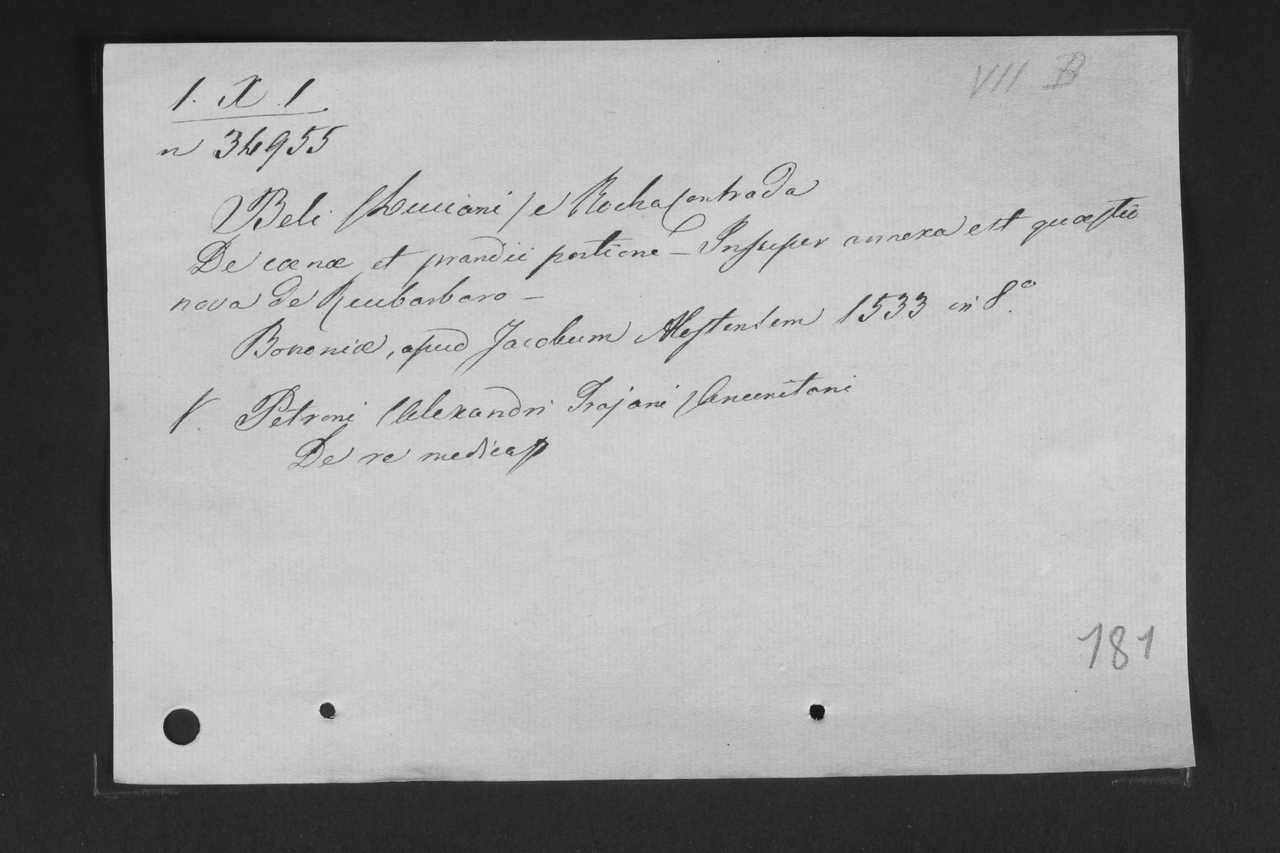 VII B
1. X. 1
n 34955
Beli (Luciani) e Rocha Contrada
De cœnæ et prandii portione – Insuper annexa est quæstio
nova de Reubarbaro –
Bononiæ, apud Jacobum 1533 in 8.º
V. Petroni (Alexandri Trajani)
De re medica
181